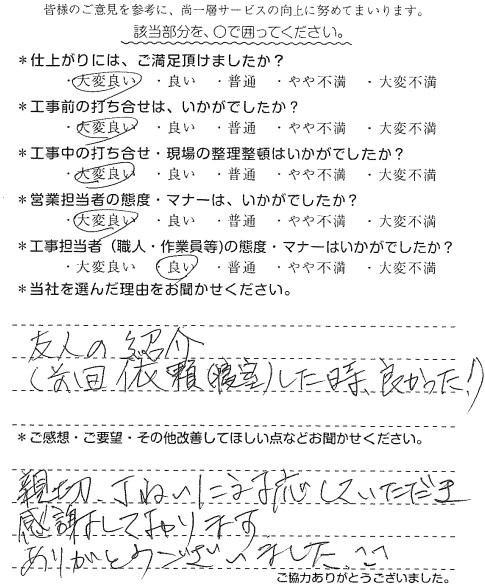 皆様のご意見を参考に、尚一層サービスの向上に努めてまいります。
該当部分を、〇で囲ってください。
＊仕上がりには、ご満足頂けましたか？
・大変良い ・良い ・普通 ・やや不満 ・大変不満
＊工事前の打ち合せは、いかがでしたか？
・大変良い ・良い ・普通 ・やや不満 ・大変不満
＊工事中の打ち合せ・現場の整理整頓はいかがでしたか？
・大変良い ・良い ・普通 ・やや不満 ・大変不満
＊営業担当者の態度・マナーは、いかがでしたか？
・大変良い ・良い ・普通 ・やや不満 ・大変不満
＊工事担当者（職人・作業員等)の態度・マナーはいかがでしたか？
・大変良い ・良い ・普通 ・やや不満 ・大変不満
＊当社を選んだ理由をお聞かせください。
友人の紹介
(前回依頼(寝室)した時、良かった!)
＊ご感想・ご要望・その他改善してほしい点などお聞かせください。
親切、丁ねいに対応していただき
感謝しております
ありがとうございました。^^
ご協力ありがとうございました。